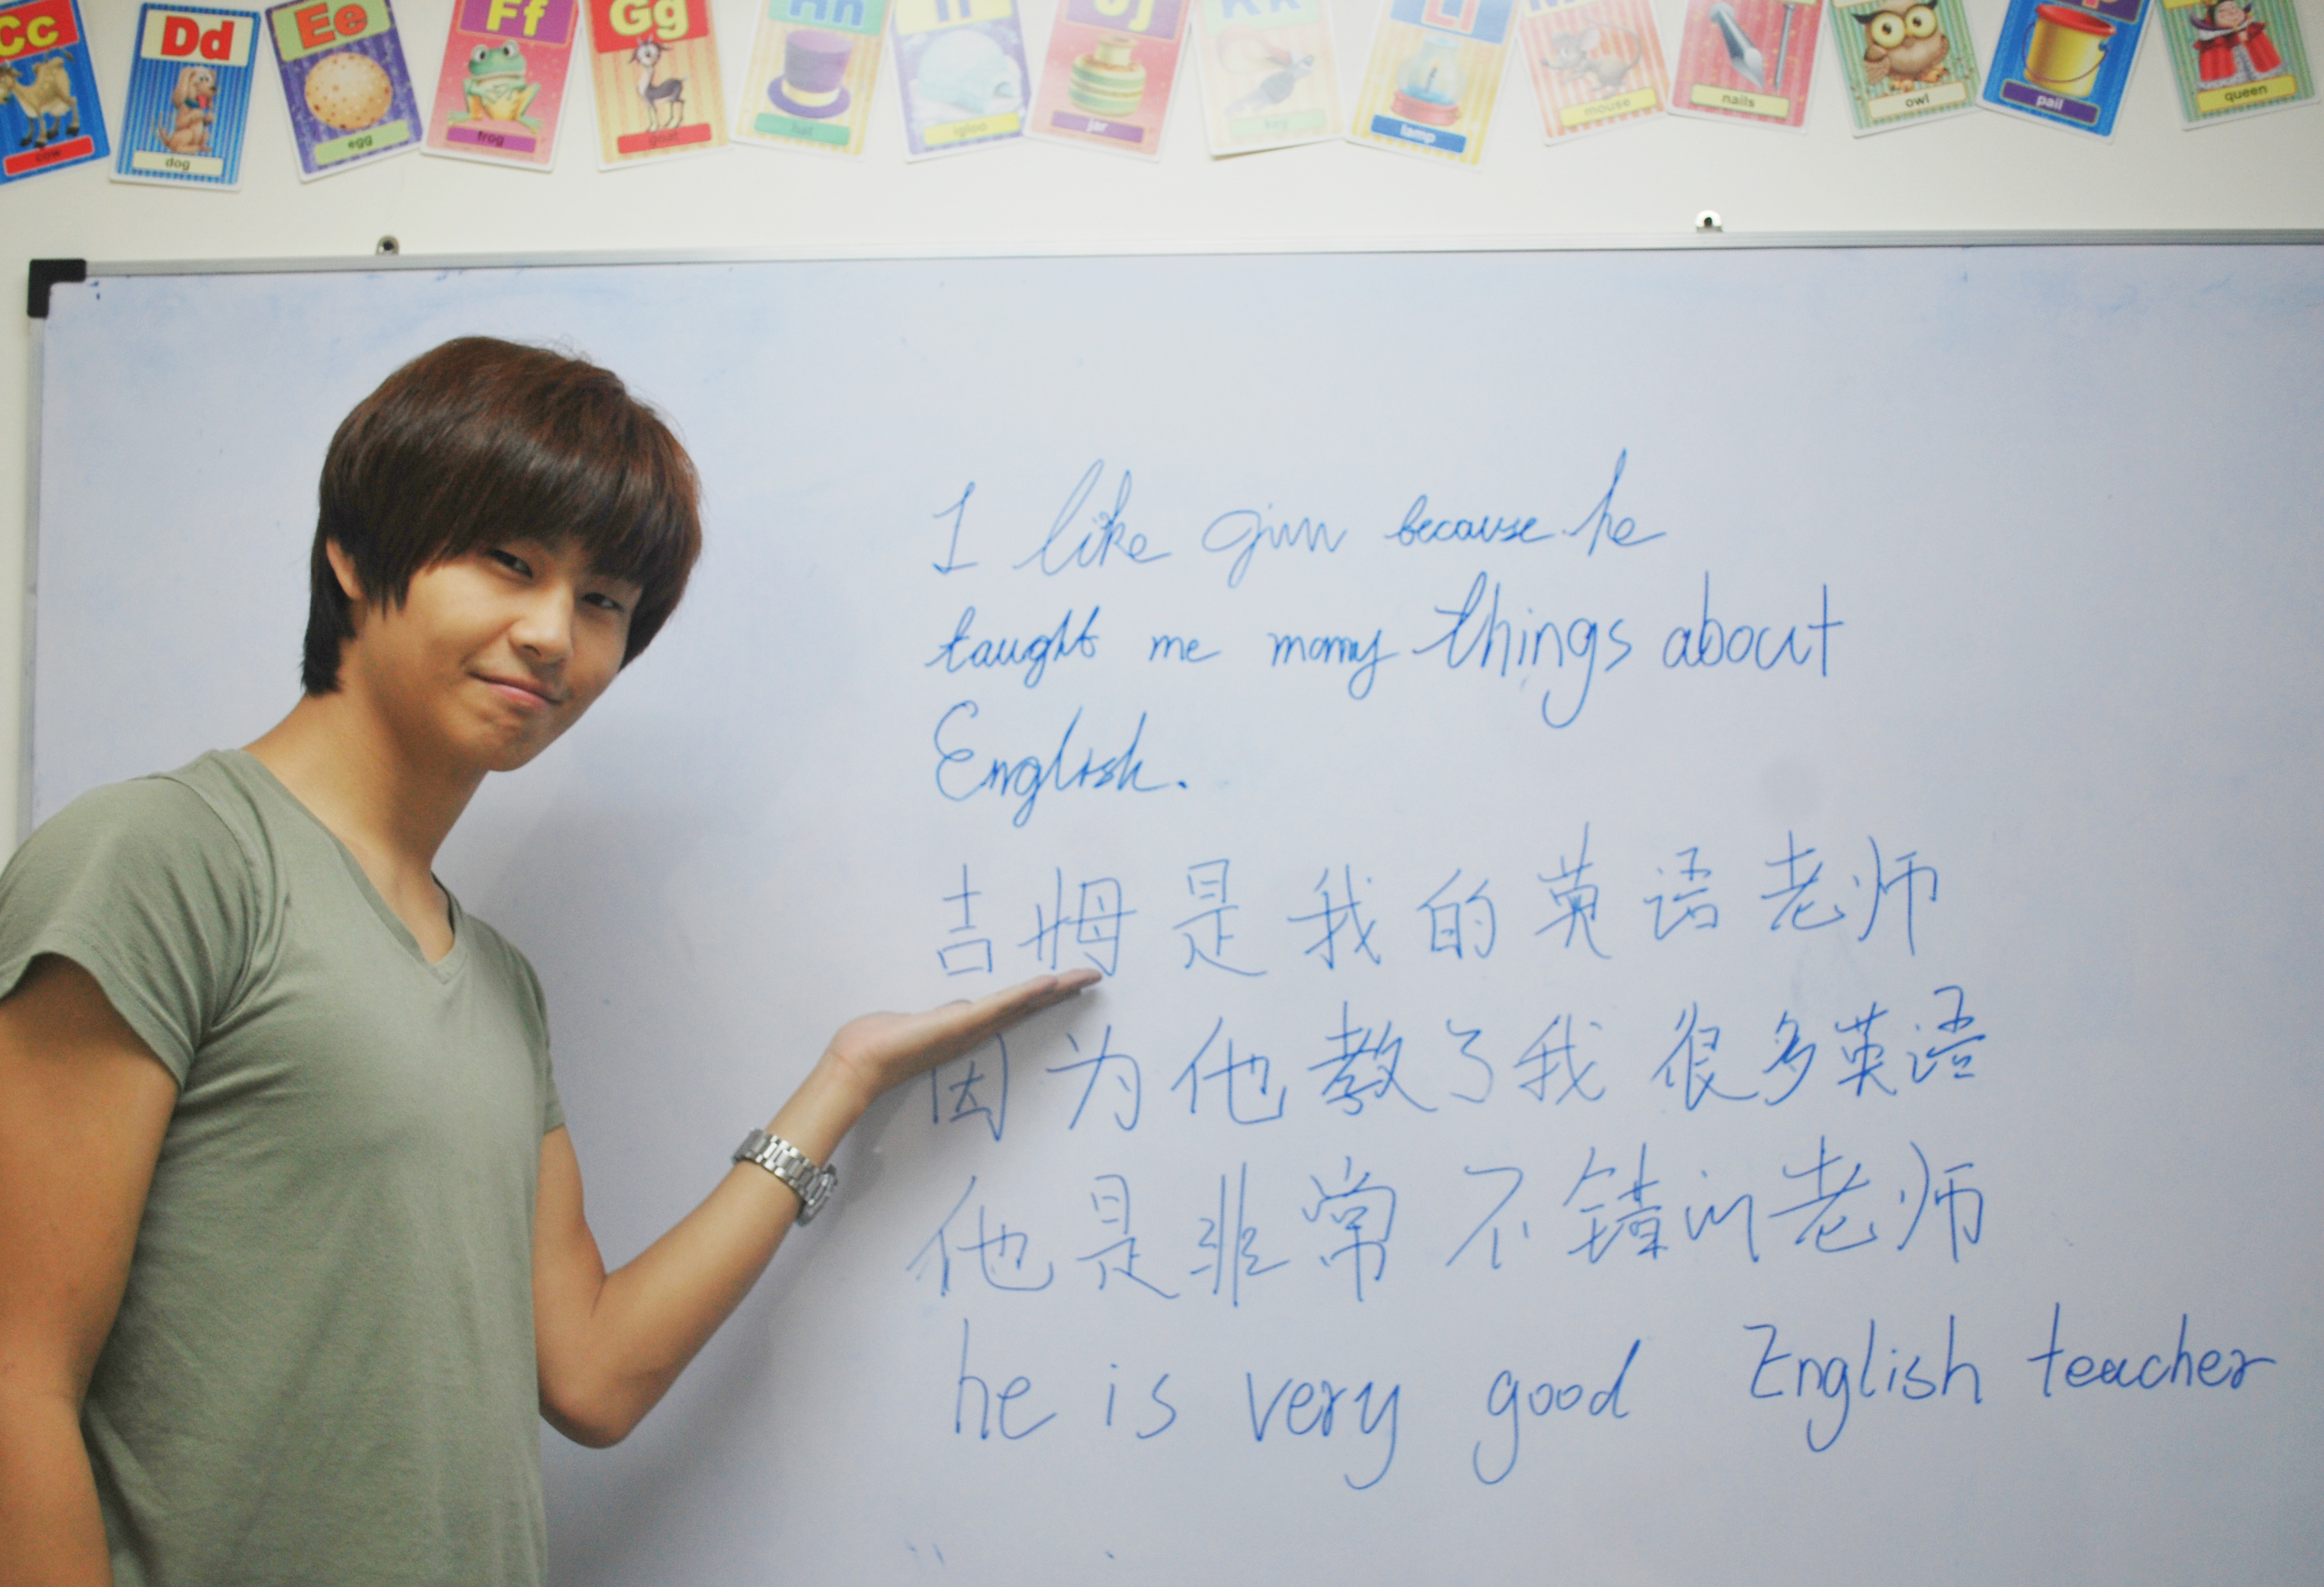 Cc Dd Ee Ff Gg Hh Jj Kk
cow dog egg frog goat hat igloo jar key lamp mouse nails owl pail queen
I like gim because he
taught me many things about
English.
吉姆是我的英语老师
因为他教了我很多英语
他是非常不错的老师
he is very good English teacher